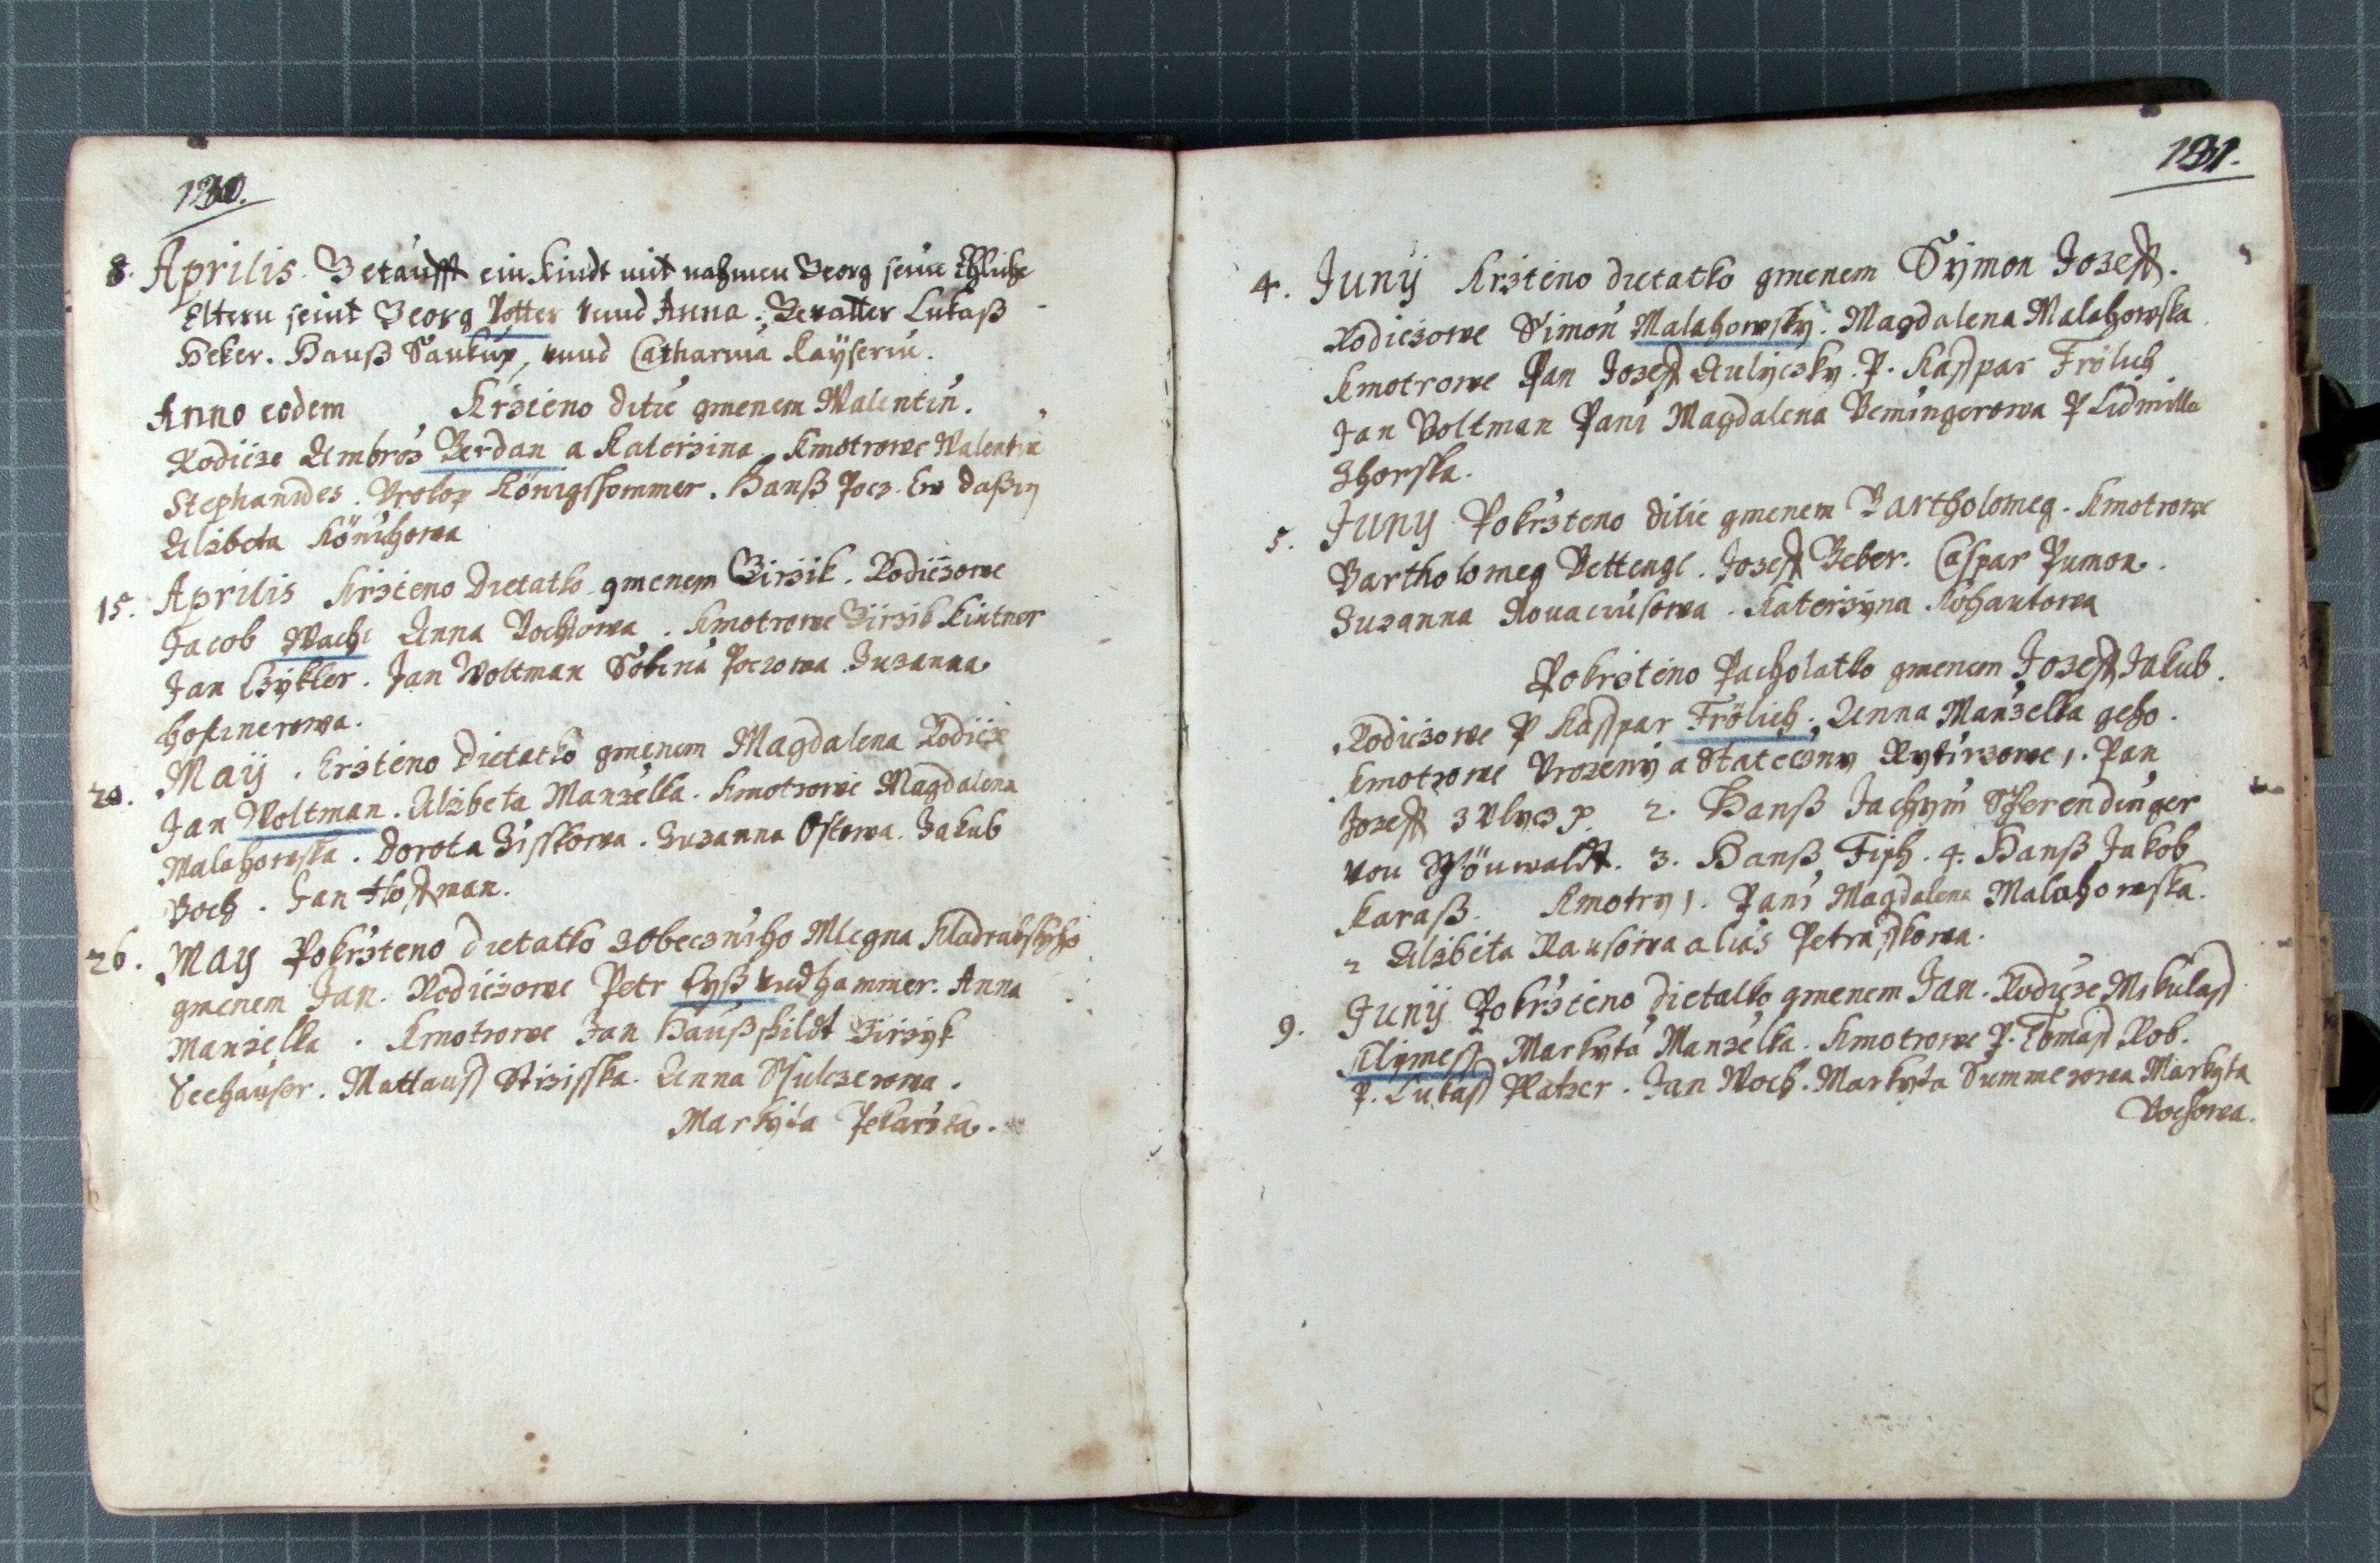 130.
8. Aprilis. Getaufft ein Kindt mit nahmen Georg seine Ehliche
Eltern seint Georg Potter vnnd Anna. Gevatter Lukaß
Heker. Hanß Saukup, vnnd Catharina Kayserin.
Anno eodem Krzteno ditie gmenem Walentin.
Rodicze Ambroz Berdan a Katerzina. Kmotrowe Valentin
Stephanides. Prokop Königssommer. Hanß Pocz.
Alzbeta Könichowa
15. Aprilis Krzteno Dietatko gmenem Girzik. Rodiczowe
Jacob Woch Anna Vochowa. Kmotrowe Girzik Kintner
Jan Czykler. Jan Woltman Sobina Poczowa Zuzanna
hofinerowa.
20. Maij. Krzteno Dietatko gmenem Magdalena Rodicze
Jan Woltman. Alzbeta Manzelka. Kmotrowe Magdalena
Malahowska. Dorota Zisskowa. Zuzanna Ostowa. Jakub
Voch. Jan Hoffman.
26. May Pokrzteno dietatko zobeczniho Mlegna Kladrubskyho
gmenem Jan. Rodiczowe Petr Lyß vndhammer. Anna
Manzelka. Kmotrowe Jan Haußhildt Girzyk
Seehauser. Mattauss Strzisska. Anna Ssulczerowa.
Markyta Pekarzka.
131.
4. Junij Krzteno dietatko gmenem Symon Jozeff.
Rodiczowe Simon Malahowsky. Magdalena Malahowska
Kmotrowe Pan Jozeff Aulyczky. P. Kasspar Frölich
Jan Voltman Pani Magdalena Demingerowa P Lidmilla
Zhorska.
5. Juny Pokrzteno ditie gmenem Bartholomeg. Kmotrowe
Bartholomeg Vettengl. Jozeff Beber. Caspar Pumon.
Zuzanna Katerzyna Kohautowa
Pokrzteno Pacholatko gmenem Jozeff Jakub.
Rodiczowe P Kasspar Frölich. Anna Manzelka geho.
Kmotrowe Vrozeny a Stateczny Rytirzowe 1. Pan
Jozeff z Vlycz P. 2. Hanß Jachym Sferendinger
von Schönwaldt. 3. Hanß Fiph. 4. Hanß Jakob
Karaß. Kmotry 1. Pani Magdalena Malahowska.
2 Alzbeta Rausowa alias Petrasskowa.
9. Junij Pokrzteno Dietatko gmenem Jan. Rodicze Mikulass
Klymess Markyta Manzelka. Kmotrowe P. Tomass Rob.
P. Lukass Platzer. Jan Woch. Markyta Summerowa Markyta
Vochowa.